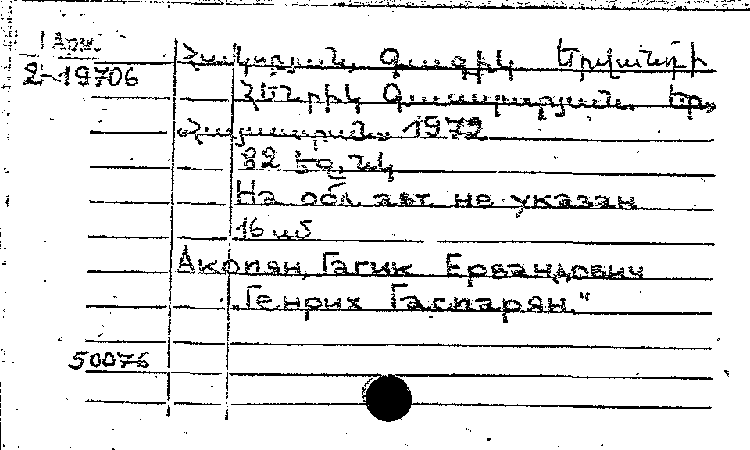 1 Арм.
2-19706
Հակոբյան, Գագիկ Երվանդի
Հենրիկ Գասպարյան. Եր.,
«Հայաստան» 1972
82 եզ. նկ
На обл. авт. не указан
16 սմ
Акопян, Гагик Ервандович
„Генрих Гаспарян."
50076